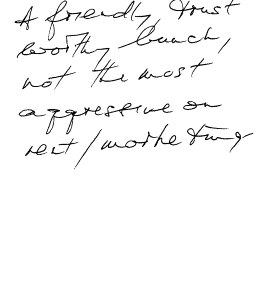 A friendly, trust
worthy bunch,
not the most
aggressive on
rent/marketing